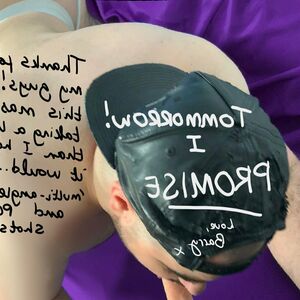 Thanks fo
my guys!
this mas
taking a
than I h
it would...
(multi-angle
and PO
shots
Tommorrow!
I
PROMISE
Love,
Barry x